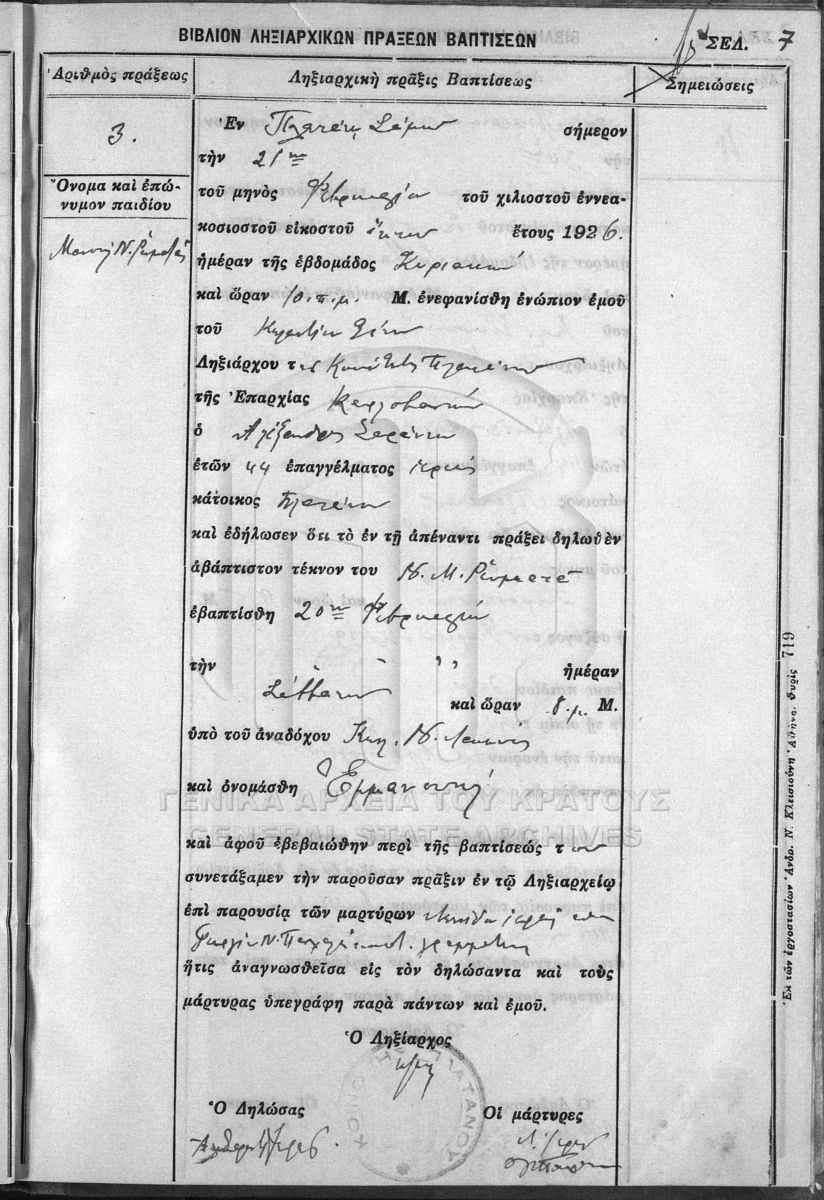 ΒΙΒΛΙΟΝ ΛΗΞΙΑΡΧΙΚΩΝ ΠΡΑΞΕΩΝ ΒΑΠΤΙΣΕΩΝ
ΣΕΛ. 7
Ἀριθμὸς πράξεως
Ληξιαρχικὴ πρᾶξις Βαπτίσεως
Σημειώσεις
3.
Ὄνομα καὶ ἐπώ-
νυμον παιδίου
Ἐν Πλατάνῳ Σάμου σήμερον
τὴν 21ην
τοῦ μηνὸς Φεβρουαρίου τοῦ χιλιοστοῦ ἐννεα-
κοσιοστοῦ εἰκοστοῦ ἕκτου ἔτους 1926.
ἡμέραν τῆς ἑβδομάδος Κυριακὴν
καὶ ὥραν 10 π.μ. Μ. ἐνεφανίσθη ἐνώπιον ἐμοῦ
τοῦ
Ληξιάρχου τῆς Κοινότητος Πλατάνου
τῆς Ἐπαρχίας Καρλοβασίου
ὁ Ἀλέξανδρος
ἐτῶν 44 ἐπαγγέλματος ἱερεὺς
κάτοικος Πλατάνου
καὶ ἐδήλωσεν ὅτι τὸ ἐν τῇ ἀπέναντι πράξει δηλωθὲν
ἀβάπτιστον τέκνον του Ν. Μ.
ἐβαπτίσθη 20ην Φεβρουαρίου
τὴν " " ἡμέραν
Σάββατον καὶ ὥραν 8 μ. Μ.
ὑπὸ τοῦ ἀναδόχου Ν.
καὶ ὀνομάσθη Ἐμμανουὴλ
ΓΕΝΙΚΑ ΑΡΧΕΙΑ ΤΟΥ ΚΡΑΤΟΥΣ
GENERAL STATE ARCHIVES
καὶ ἀφοῦ ἐβεβαιώθην περὶ τῆς βαπτίσεώς του
συνετάξαμεν τὴν παροῦσαν πρᾶξιν ἐν τῷ Ληξιαρχείῳ
ἐπὶ παρουσίᾳ τῶν μαρτύρων
Γεωργίου Ν.
ἥτις ἀναγνωσθεῖσα εἰς τὸν δηλώσαντα καὶ τοὺς
μάρτυρας ὑπεγράφη παρὰ πάντων καὶ ἐμοῦ.
Ὁ Ληξίαρχος
ΠΛΑΤΑΝΟΥ
Ὁ Δηλώσας
Οἱ μάρτυρες
Ἐκ τῶν ἐργοστασίων Ἀνδρ. Ν. Κλεισιούνη Ἀθῆναι. Θυρὶς 719